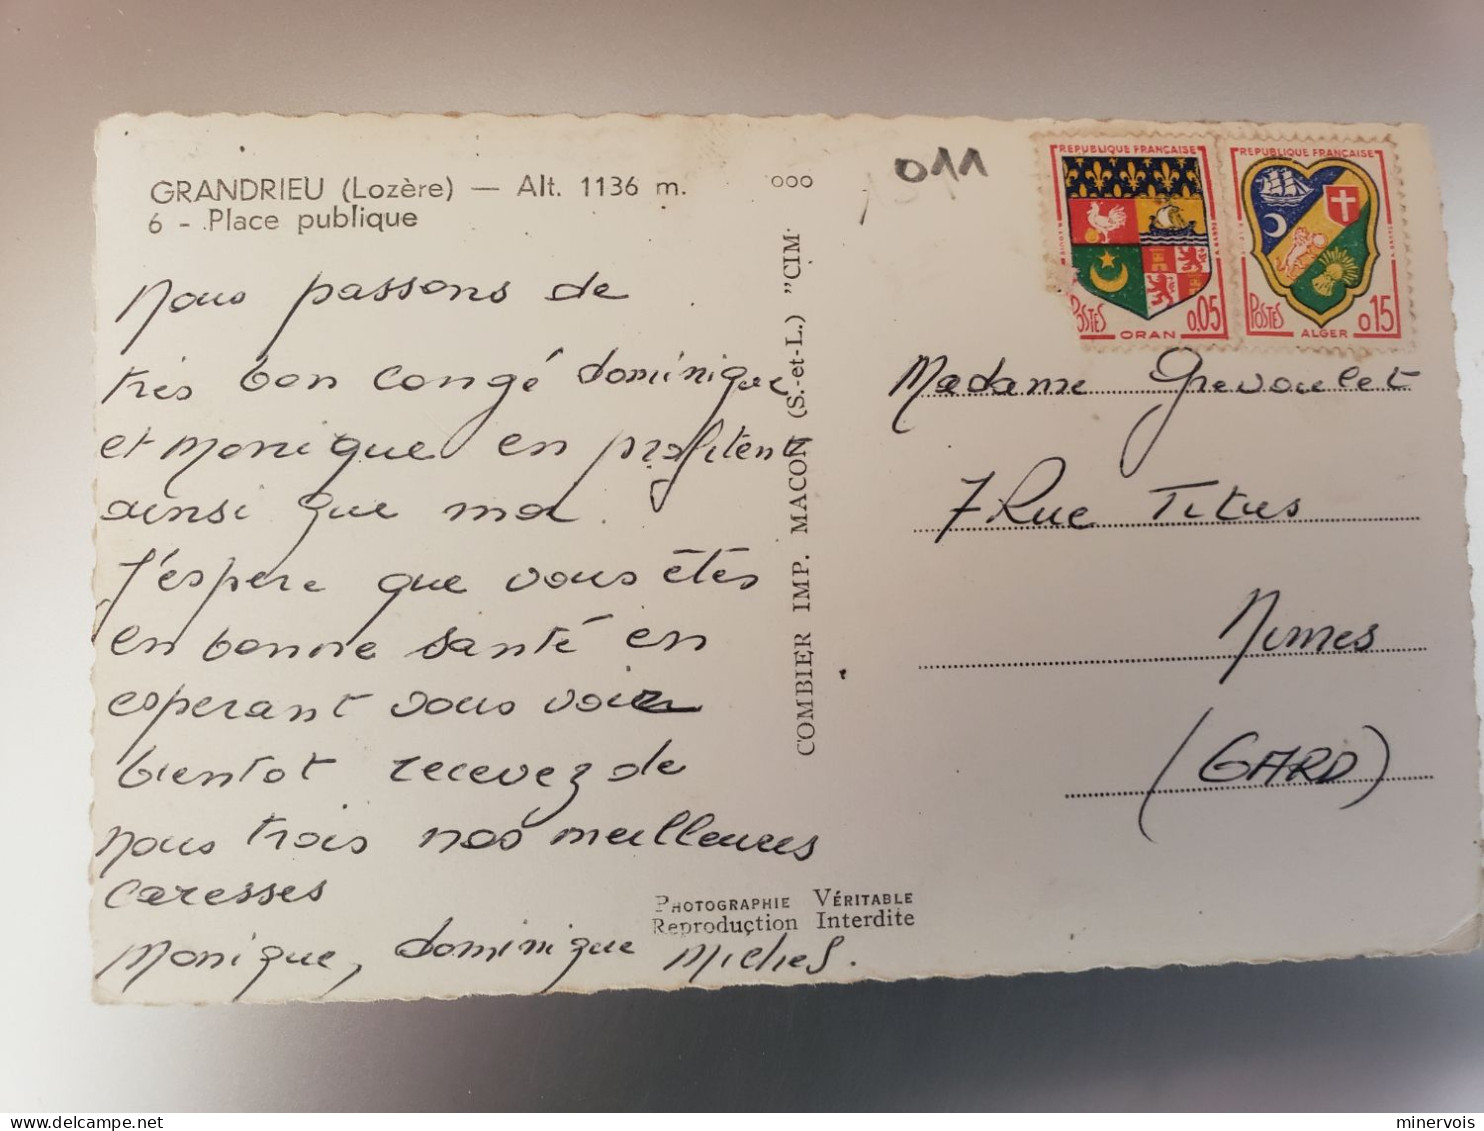 GRANDRIEU (Lozère) — Alt. 1136 m.
6 - Place publique
Nous passons de
très bon congé dominique
et monique en profitent
ainsi que moi.
J'espère que vous êtes
en bonne santé en
esperant vous voir
bientot recevez de
nous trois nos meilleures
caresses
Monique, dominique Michel.
ooo
COMBIER IMP. MACON (S.-et-L.) "CIM
PHOTOGRAPHIE VÉRITABLE
Reproduction Interdite
011
REPUBLIQUE FRANÇAISE
POSTES
0.05
ORAN
REPUBLIQUE FRANÇAISE
POSTES
0.15
ALGER
Madame Grevoulet
7 Rue Titus
Nimes
(GARD)
minervois